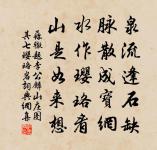 泉流逢石缺
脉散成寶網
水作瓔珞看
山是如來想
蘇轍題李公麟山庄圖
其七瓔珞岩詞典網集